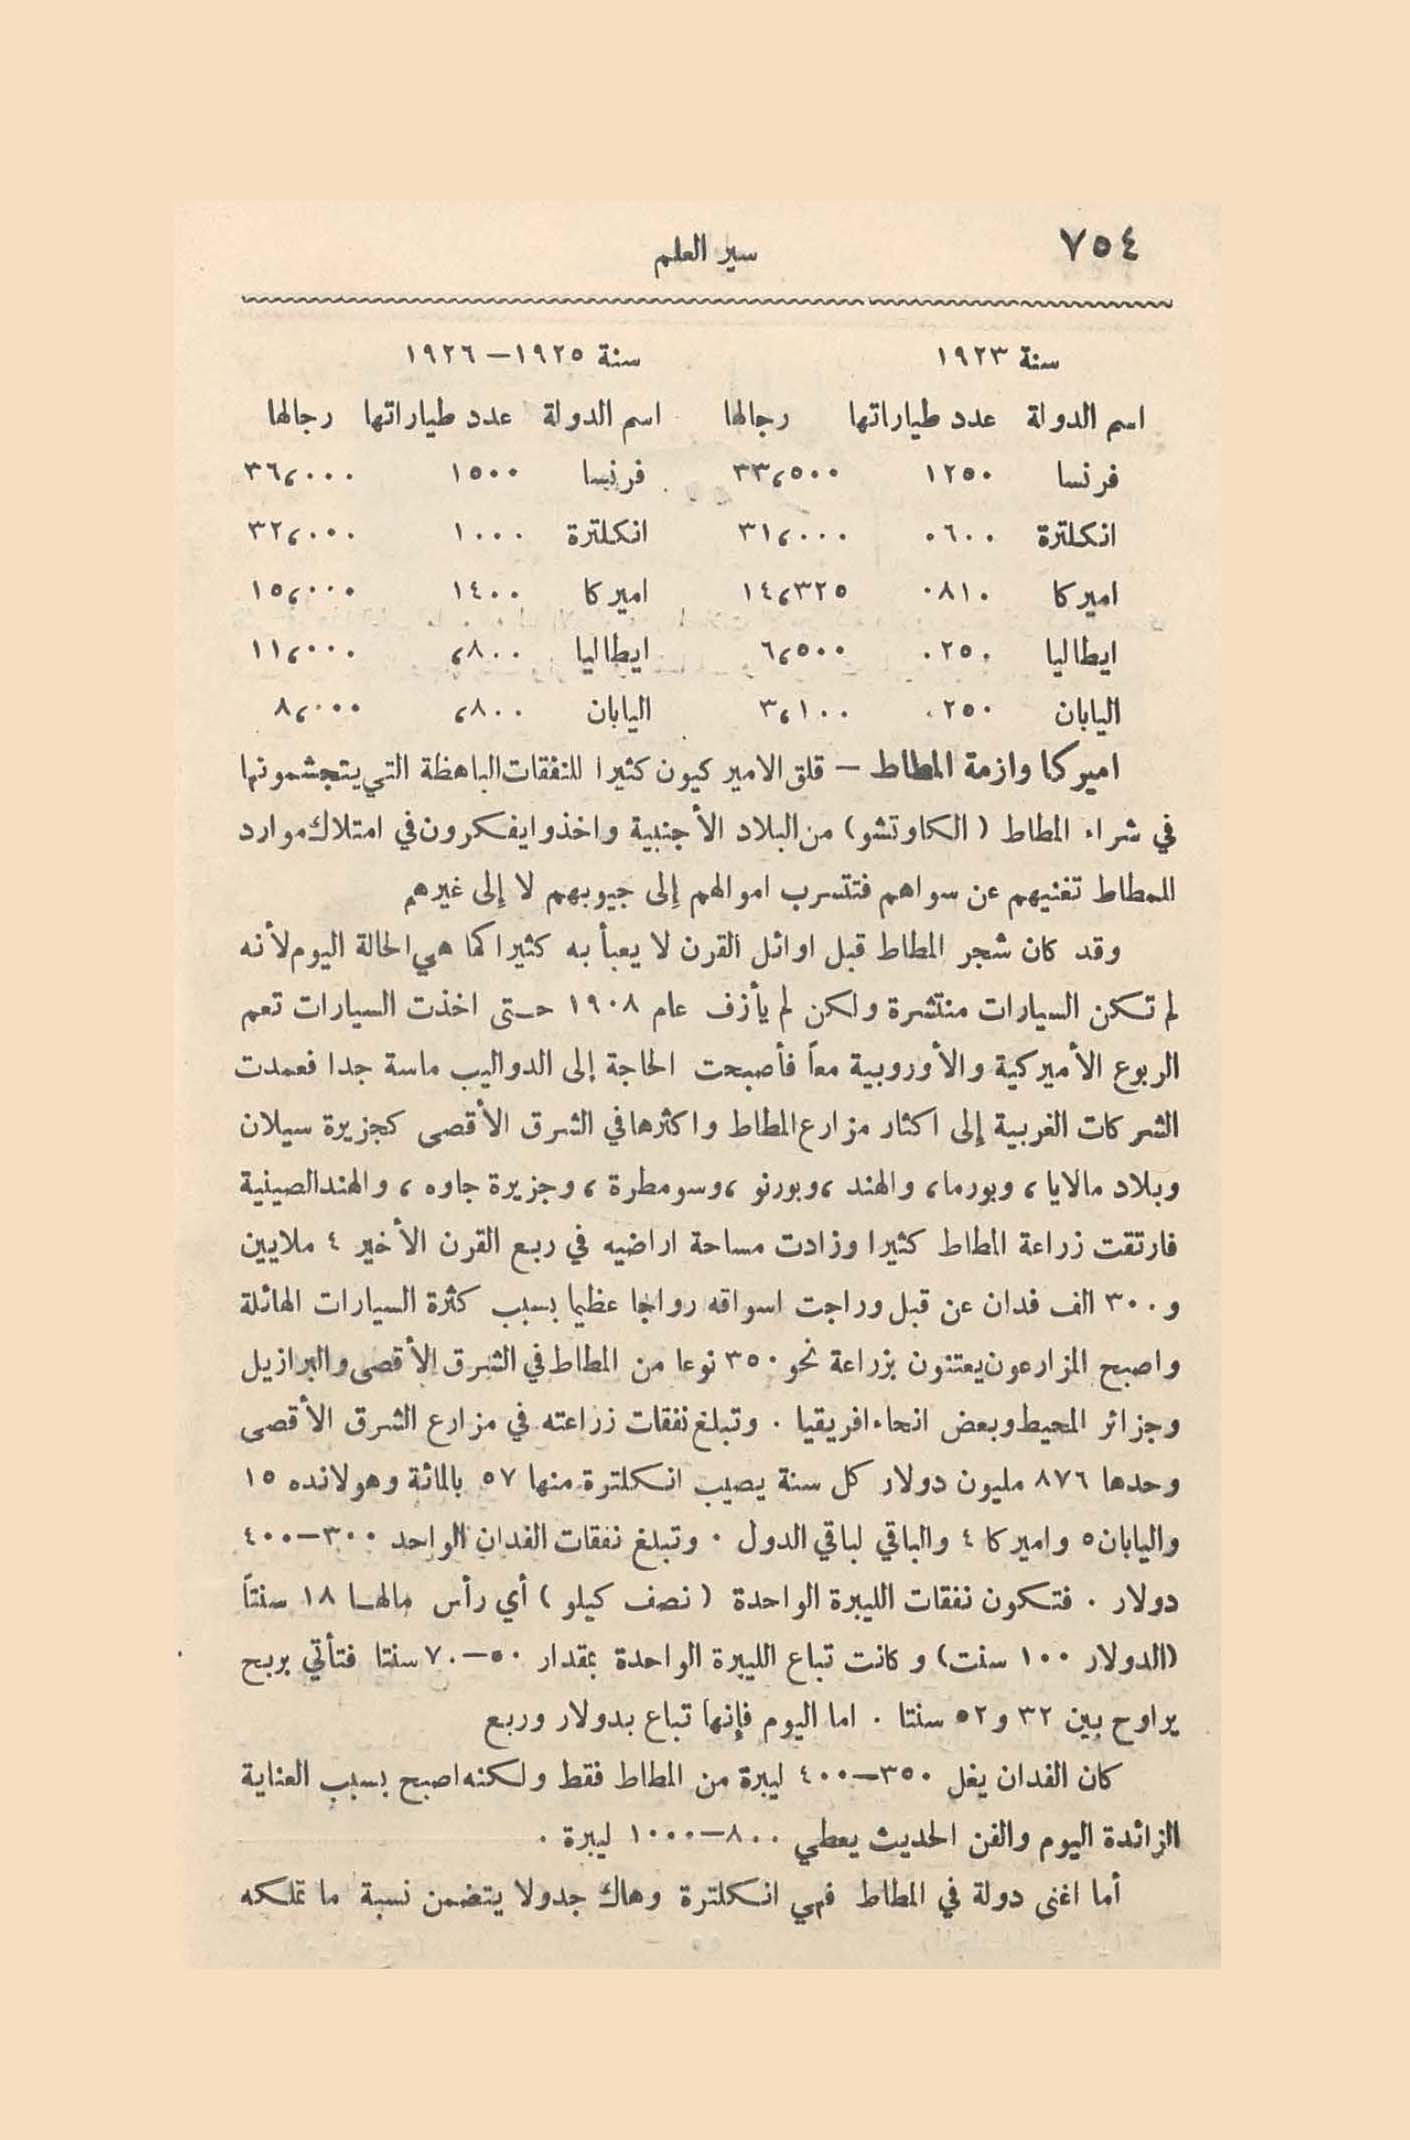 ٧٥٤ سير العلم
سنة ١٩٢٣ سنة ١٩٢٥ – ١٩٢٦
اسم الدولة عدد طياراتها رجالها اسم الدولة عدد طياراتها رجالها
فرنسا ١٢٥٠ ٣٣،٥٠٠ فرنسا ١٥٠٠ ٣٦،٠٠٠
انكلترة ٠٦٠٠ ٣١،٠٠٠ انكلترة ١٠٠٠ ٣٢،٠٠٠
اميركا ٠٨١٠ ١٤،٣٢٥ اميركا ١٤٠٠ ١٥،٠٠٠
ايطاليا ٠٢٥٠ ٦،٥٠٠ ايطاليا ،٨٠٠ ١١،٠٠٠
اليابان ٠٢٥٠ ٣،١٠٠ اليابان ،٨٠٠ ٨،٠٠٠
اميركا وازمة المطاط – قلق الاميركيون كثيرا للنفقات الباهظة التي يتجشمونها
في شراء المطاط ( الكاوتشو ) من البلاد الأجنبية واخذوا يفكرون في امتلاك موارد
للمطاط تغنيهم عن سواهم فتتسرب اموالهم إلى جيوبهم لا إلى غيرهم
وقد كان شجر المطاط قبل اوائل القرن لا يعبأ به كثيرا كما هي الحالة اليوم لأنه
لم تكن السيارات منتشرة ولكن لم يأزف عام ١٩٠٨ حتى اخذت السيارات تعم
الربوع الأميركية والأوروبية معاً فأصبحت الحاجة إلى الدواليب ماسة جدا فعمدت
الشركات الغربية إلى اكثار مزارع المطاط واكثرها في الشرق الأقصى كجزيرة سيلان
وبلاد مالايا ، وبورما، والهند ، وبورنو ، وسومطرة ، وجزيرة جاوه ، والهند الصينية
فارتقت زراعة المطاط كثيرا وزادت مساحة اراضيه في ربع القرن الأخير ٤ ملايين
و ٣٠٠ الف فدان عن قبل وراجت اسواقه رواجا عظيما بسبب كثرة السيارات الهائلة
واصبح المزارعون يعتنون بزراعة نحو ٣٥٠ نوعا من المطاط في الشرق الأقصى والبرازيل
وجزائر المحيط وبعض انحاء افريقيا . وتبلغ نفقات زراعته في مزارع الشرق الأقصى
وحدها ٨٧٦ مليون دولار كل سنة يصيب انكلترة منها ٥٧ بالمائة وهولانده ١٥
واليابان ٥ واميركا ٤ والباقي لباقي الدول . وتبلغ نفقات الفدان الواحد ٣٠٠–٤٠٠
دولار . فتكون نفقات الليبرة الواحدة ( نصف كيلو ) أي رأس مالها ١٨ سنتاً
(الدولار ١٠٠ سنت) وكانت تباع الليبرة الواحدة بمقدار ٥٠–٧٠ سنتا فتأتي بربح
يراوح بين ٣٢ و ٥٢ سنتا . اما اليوم فإنها تباع بدولار وربع
كان الفدان يغل ٣٥٠–٤٠٠ ليبرة من المطاط فقط ولكنه اصبح بسبب العناية
الزائدة اليوم والفن الحديث يعطي ٨٠٠–١٠٠٠ ليبرة .
أما اغنى دولة في المطاط فهي انكلترة وهاك جدولا يتضمن نسبة ما تملكه